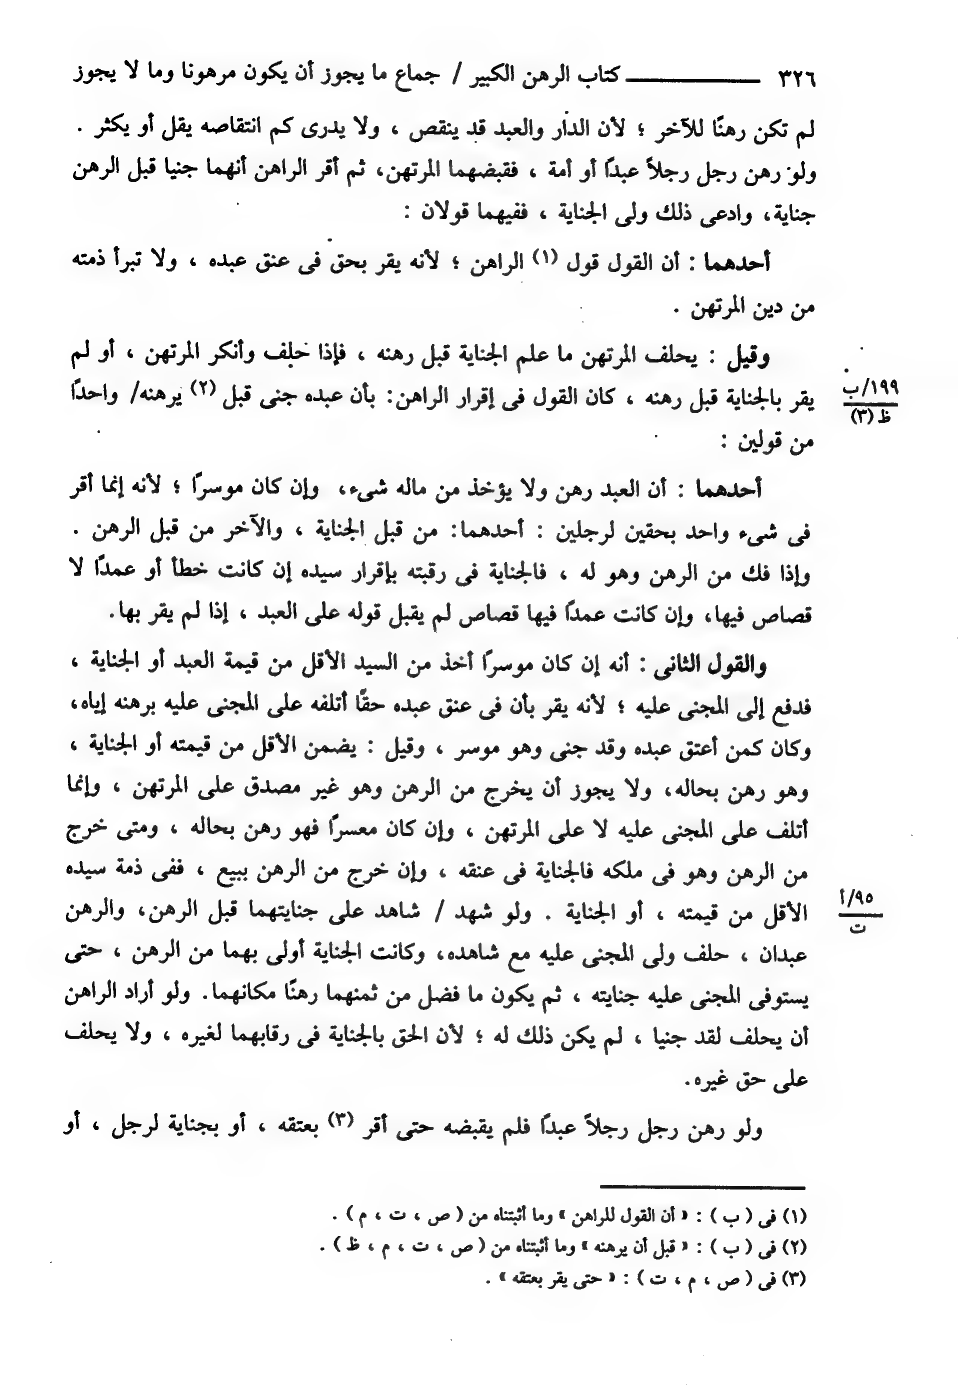 ٣٢٦ ــــــــــــ كتاب الرهن الكبير / جماع ما يجوز أن يكون مرهونا وما لا يجوز
لم تكن رهنًا للآخر ؛ لأن الدار والعبد قد ينقص ، ولا يدرى كم انتقاصه يقل أو يكثر .
ولو رهن رجل رجلاً عبدًا أو أمة ، فقبضهما المرتهن، ثم أقر الراهن أنهما جنيا قبل الرهن
جناية، وادعى ذلك ولى الجناية ، ففيهما قولان :
أحدهما : أن القول قول (١) الراهن ؛ لأنه يقر بحق فى عنق عبده ، ولا تبرأ ذمته
من دين المرتهن .
وقيل : يحلف المرتهن ما علم الجناية قبل رهنه ، فإذا حلف وأنكر المرتهن ، أو لم
١٩٩/ب
يقر بالجناية قبل رهنه ، كان القول فى إقرار الراهن: بأن عبده جنى قبل (٢) يرهنه/ واحدًا
ظ (٣)
من قولين :
أحدهما : أن العبد رهن ولا يؤخذ من ماله شىء، وإن كان موسرًا ؛ لأنه إنما أقر
فى شىء واحد بحقين لرجلين : أحدهما: من قبل الجناية ، والآخر من قبل الرهن .
وإذا فك من الرهن وهو له ، فالجناية فى رقبته بإقرار سيده إن كانت خطأ أو عمدًا لا
قصاص فيها، وإن كانت عمدًا فيها قصاص لم يقبل قوله على العبد ، إذا لم يقر بها.
والقول الثانى : أنه إن كان موسرًا أخذ من السيد الأقل من قيمة العبد أو الجناية ،
فدفع إلى المجنى عليه ؛ لأنه يقر بأن فى عنق عبده حقًا أتلفه على المجنى عليه برهنه إياه،
وكان كمن أعتق عبده وقد جنى وهو موسر ، وقيل : يضمن الأقل من قيمته أو الجناية ،
وهو رهن بحاله، ولا يجوز أن يخرج من الرهن وهو غير مصدق على المرتهن ، وإنما
أتلف على المجنى عليه لا على المرتهن ، وإن كان معسرًا فهو رهن بحاله ، ومتى خرج
من الرهن وهو فى ملكه فالجناية فى عنقه ، وإن خرج من الرهن ببيع ، ففى ذمة سيده
٩٥/أ
الأقل من قيمته ، أو الجناية . ولو شهد / شاهد على جنايتهما قبل الرهن، والرهن
ت
عبدان ، حلف ولى المجنى عليه مع شاهده، وكانت الجناية أولى بهما من الرهن ، حتى
يستوفى المجنى عليه جنايته ، ثم يكون ما فضل من ثمنهما رهنًا مكانهما. ولو أراد الراهن
أن يحلف لقد جنيا ، لم يكن ذلك له ؛ لأن الحق بالجناية فى رقابهما لغيره ، ولا يحلف
على حق غيره.
ولو رهن رجل رجلاً عبدًا فلم يقبضه حتى أقر (٣) بعتقه ، أو بجناية لرجل ، أو
(١) فى ( ب ) : « أن القول للراهن » وما أثبتناه من ( ص ، ت ، م ) .
(٢) فى ( ب ) : « قبل أن يرهنه » وما أثبتناه من ( ص ، ت ، م ، ظ ) .
(٣) فى ( ص ، م ، ت ) : « حتى يقر بعتقه » .